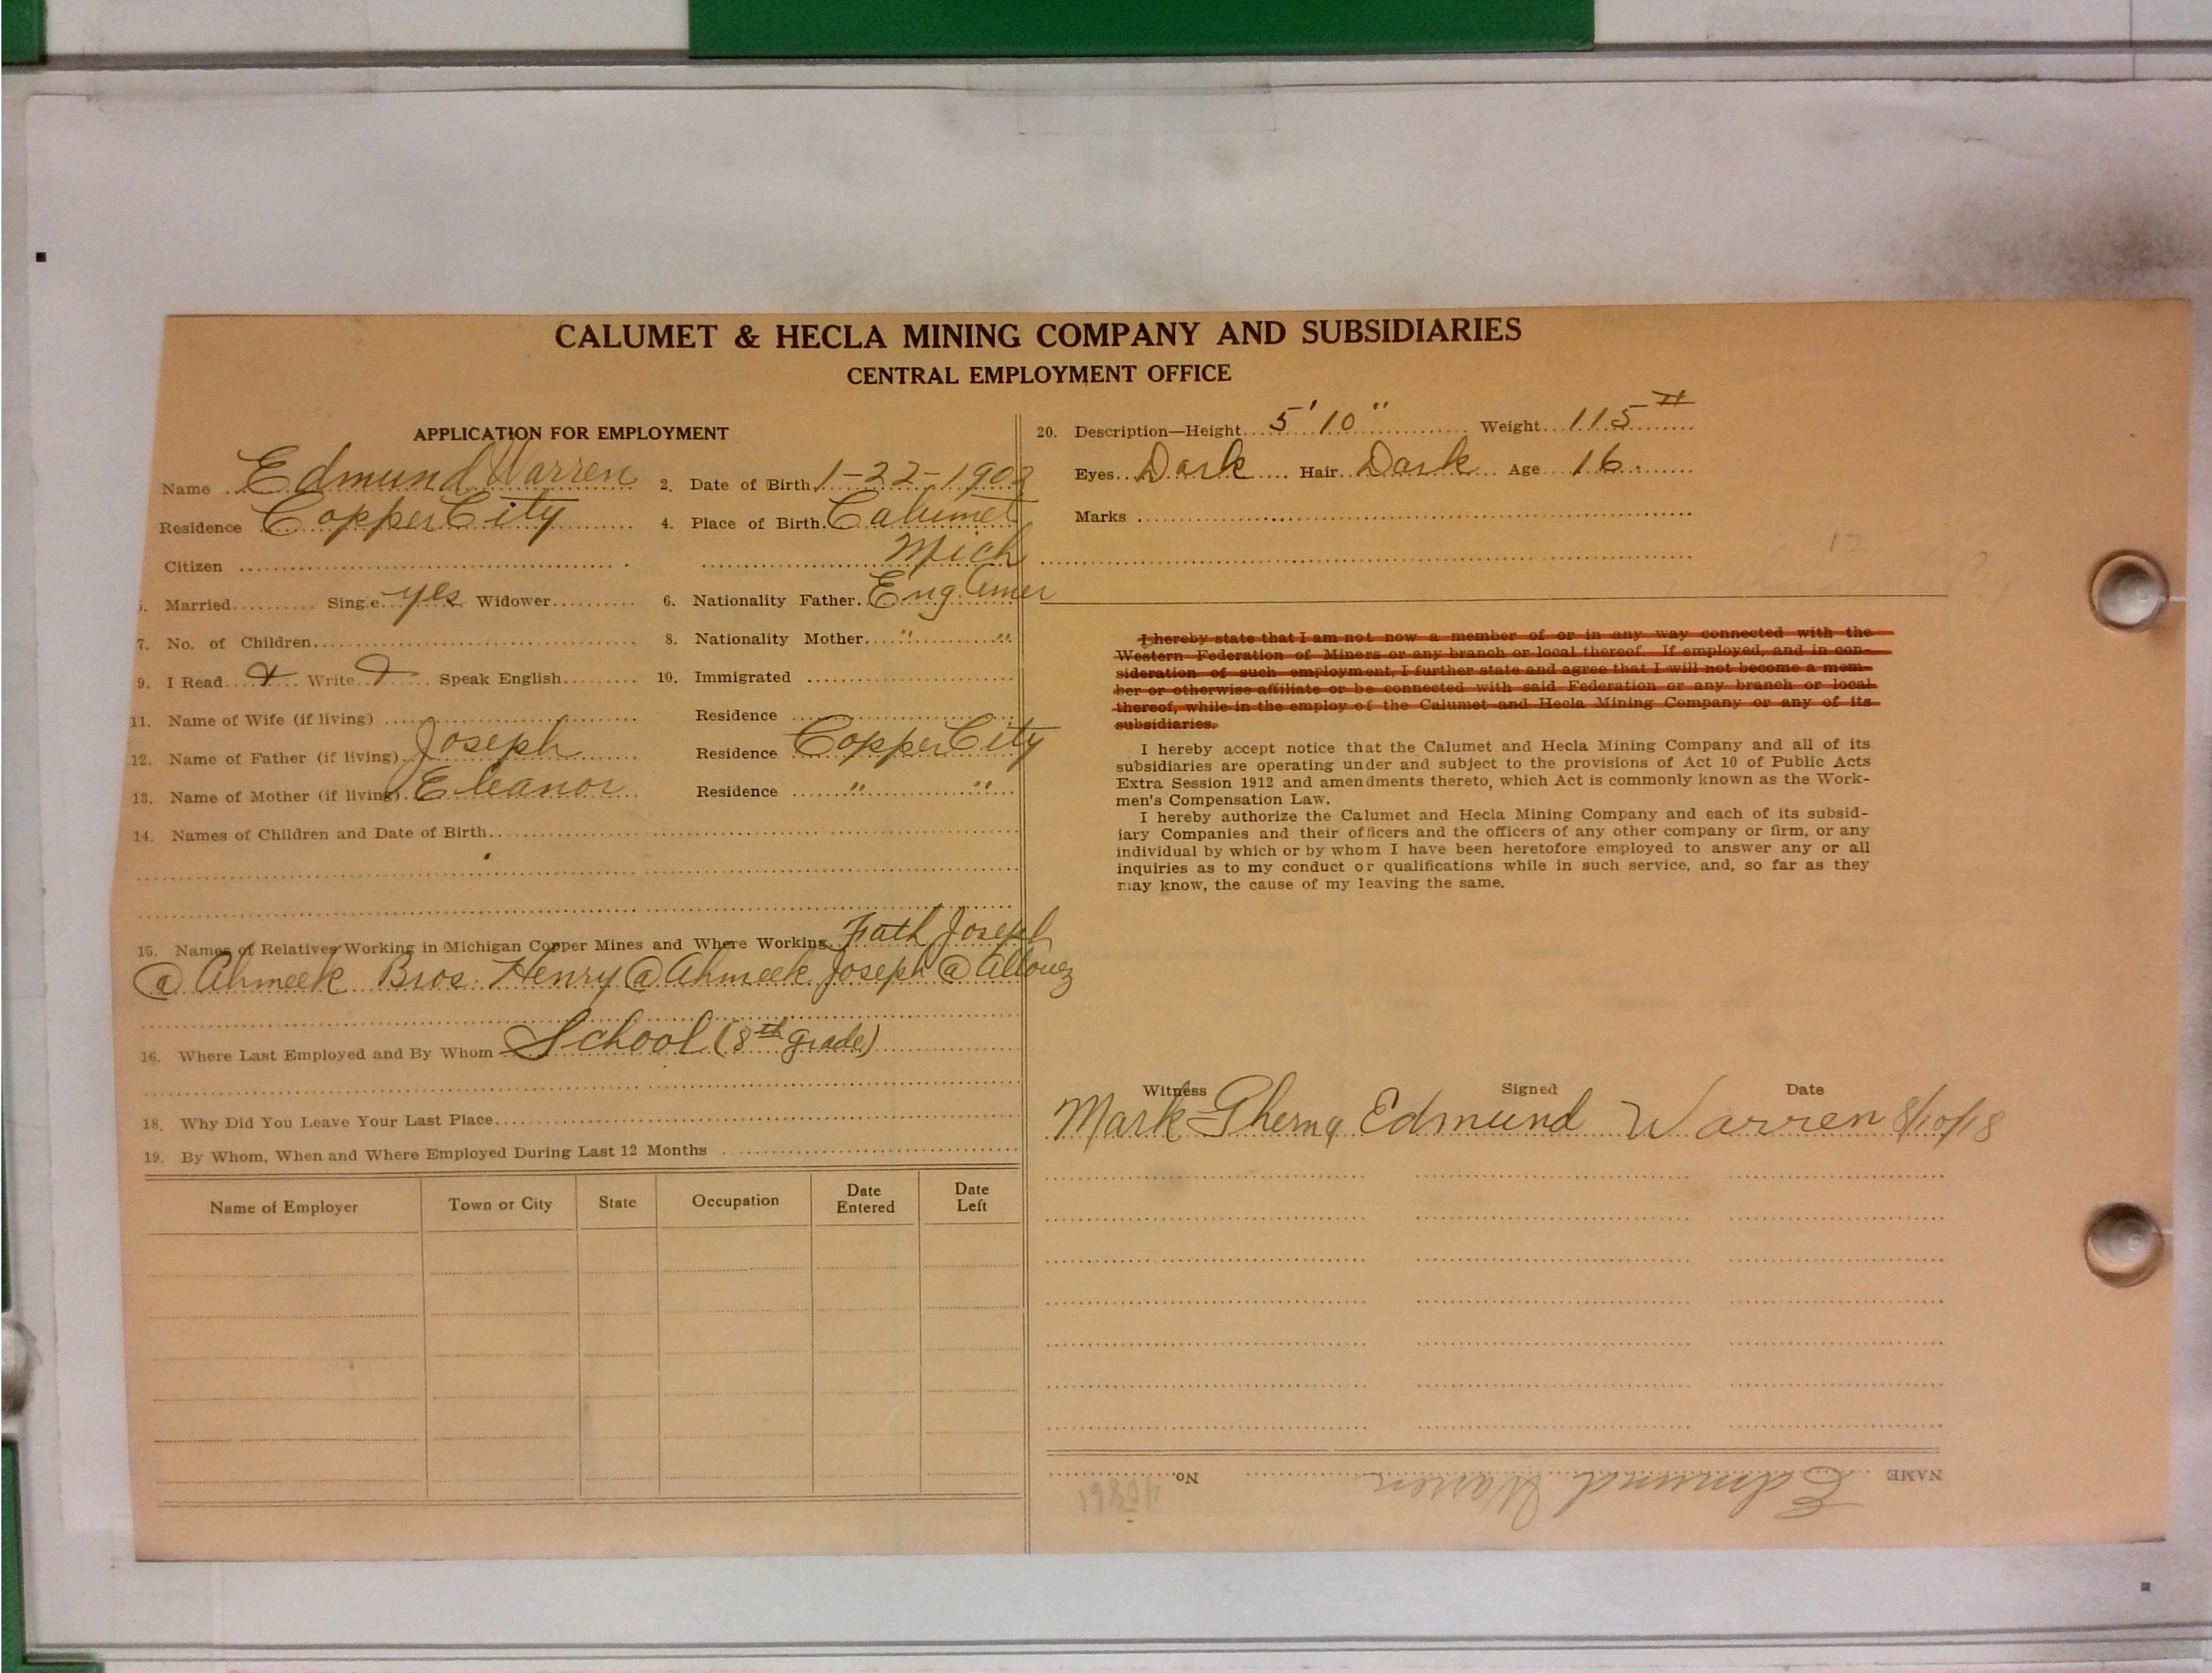 CALUMET & HECLA MINING COMPANY AND SUBSIDIARIES
CENTRAL EMPLOYMENT OFFICE
APPLICATION FOR EMPLOYMENT
Name Edmund Warren 2. Date of Birth 1-22-1902
Residence Copper City 4. Place of Birth Calumet
Citizen Mich
5. Married Single yes Widower 6. Nationality Father Eng Amer
7. No. of Children 8. Nationality Mother " "
9. I Read Write Speak English 10. Immigrated
11. Name of Wife (if living) Residence
12. Name of Father (if living) Joseph Residence Copper City
13. Name of Mother (if living) Eleanor Residence " "
14. Names of Children and Date of Birth
15. Names of Relatives Working in Michigan Copper Mines and Where Working Fath Joseph
@ Ahmeek Bros. Henry @ Ahmeek Joseph @ Allouez
16. Where Last Employed and By Whom School (8th grade)
18. Why Did You Leave Your Last Place
19. By Whom, When and Where Employed During Last 12 Months
Name of Employer Town or City State Occupation Date Entered Date Left
20. Description—Height 5' 10" Weight 115 #
Eyes Dark Hair Dark Age 16
Marks
I hereby state that I am not now a member of or in any way connected with the
Western Federation of Miners or any branch or local thereof. If employed, and in con-
sideration of such employment, I further state and agree that I will not become a mem-
ber or otherwise affiliate or be connected with said Federation or any branch or local
thereof, while in the employ of the Calumet and Hecla Mining Company or any of its
subsidiaries.
I hereby accept notice that the Calumet and Hecla Mining Company and all of its
subsidiaries are operating under and subject to the provisions of Act 10 of Public Acts
Extra Session 1912 and amendments thereto, which Act is commonly known as the Work-
men's Compensation Law.
I hereby authorize the Calumet and Hecla Mining Company and each of its subsid-
iary Companies and their officers and the officers of any other company or firm, or any
individual by which or by whom I have been heretofore employed to answer any or all
inquiries as to my conduct or qualifications while in such service, and, so far as they
may know, the cause of my leaving the same.
Witness Signed Date
Mark Edmund Warren 8/10/18
NAME Edmund Warren No.